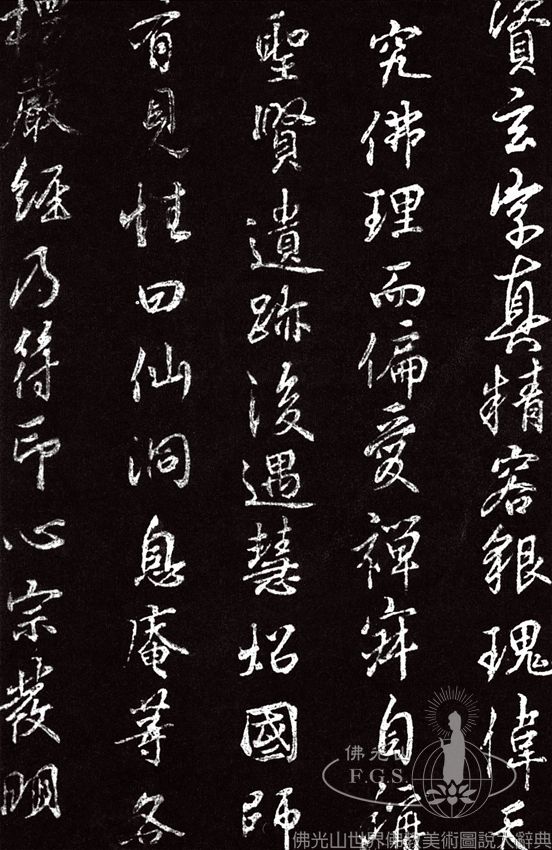 資玄字真精容貌瑰偉天
究佛理而偏愛禪寂自稱
聖賢遺跡後遇慧炤國師
有見性曰仙洞息庵等各
楞嚴經乃符印心宗發明
佛光山
F.G.S.
佛光山世界佛教美術圖說大辭典